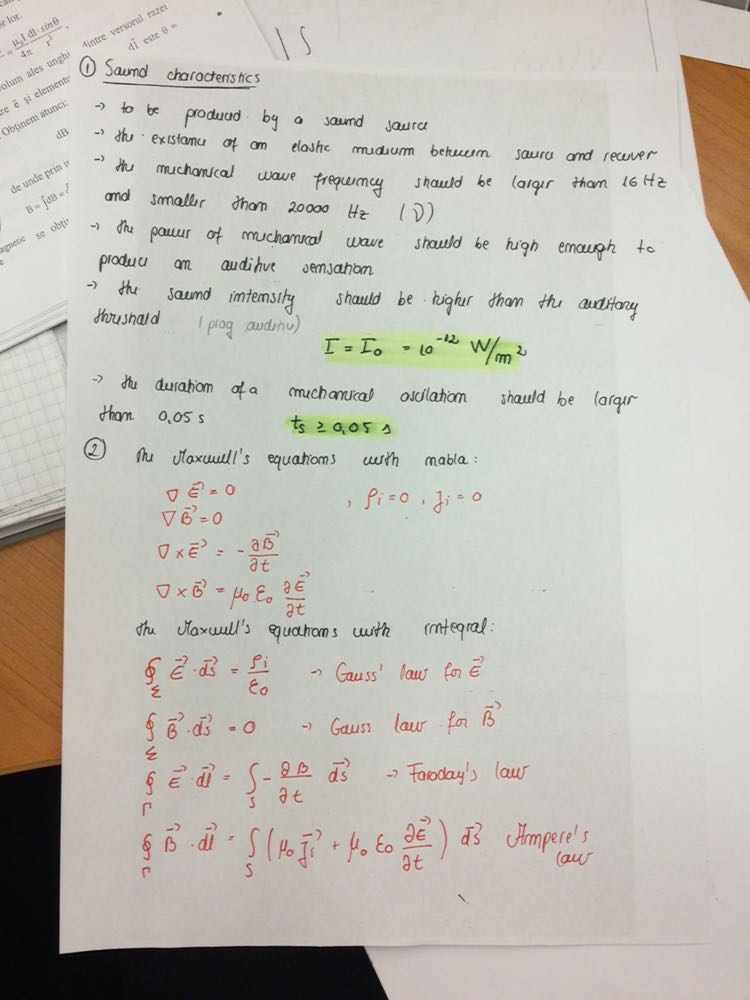 or lor.
= μ₀ I dl·sinθ / 4π r²,
volum ales unghi dintre versorul razei
dl este θ =
re ē și element
Obținem atunci:
dB
de unde prin i
B = ∫dB =
magnetic se obți
① Sound characteristics
-> to be produced by a sound source
-> the existance of an elastic medium between source and reciver
-> the mechanical wave frequency should be larger than 16 Hz
and smaller than 20000 Hz (ν)
-> the power of mechanical wave should be high enough to
produce an auditive sensation
-> the sound intensity should be higher than the auditory
threshold (prag auditiv)
I = I₀ = 10⁻¹² W/m²
-> the duration of a mechanical oscilation should be larger
than 0,05 s
ts ≥ 0,05 s
② The Maxwell's equations with nabla:
∇ E⃗ = 0 , ρi = 0 , Ji = 0
∇ B⃗ = 0
∇ × E⃗ = - ∂B⃗/∂t
∇ × B⃗ = μ₀ ε₀ ∂E⃗/∂t
The Maxwell's equations with integral:
∮Σ E⃗ · ds⃗ = ρi/ε₀ -> Gauss' law for E⃗
∮Σ B⃗ · ds⃗ = 0 -> Gauss law for B⃗
∮Γ E⃗ · dl⃗ = ∫S - ∂B/∂t ds⃗ -> Faraday's law
∮Γ B⃗ · dl⃗ = ∫S (μ₀ J⃗i + μ₀ ε₀ ∂E⃗/∂t) ds⃗ Ampere's
law